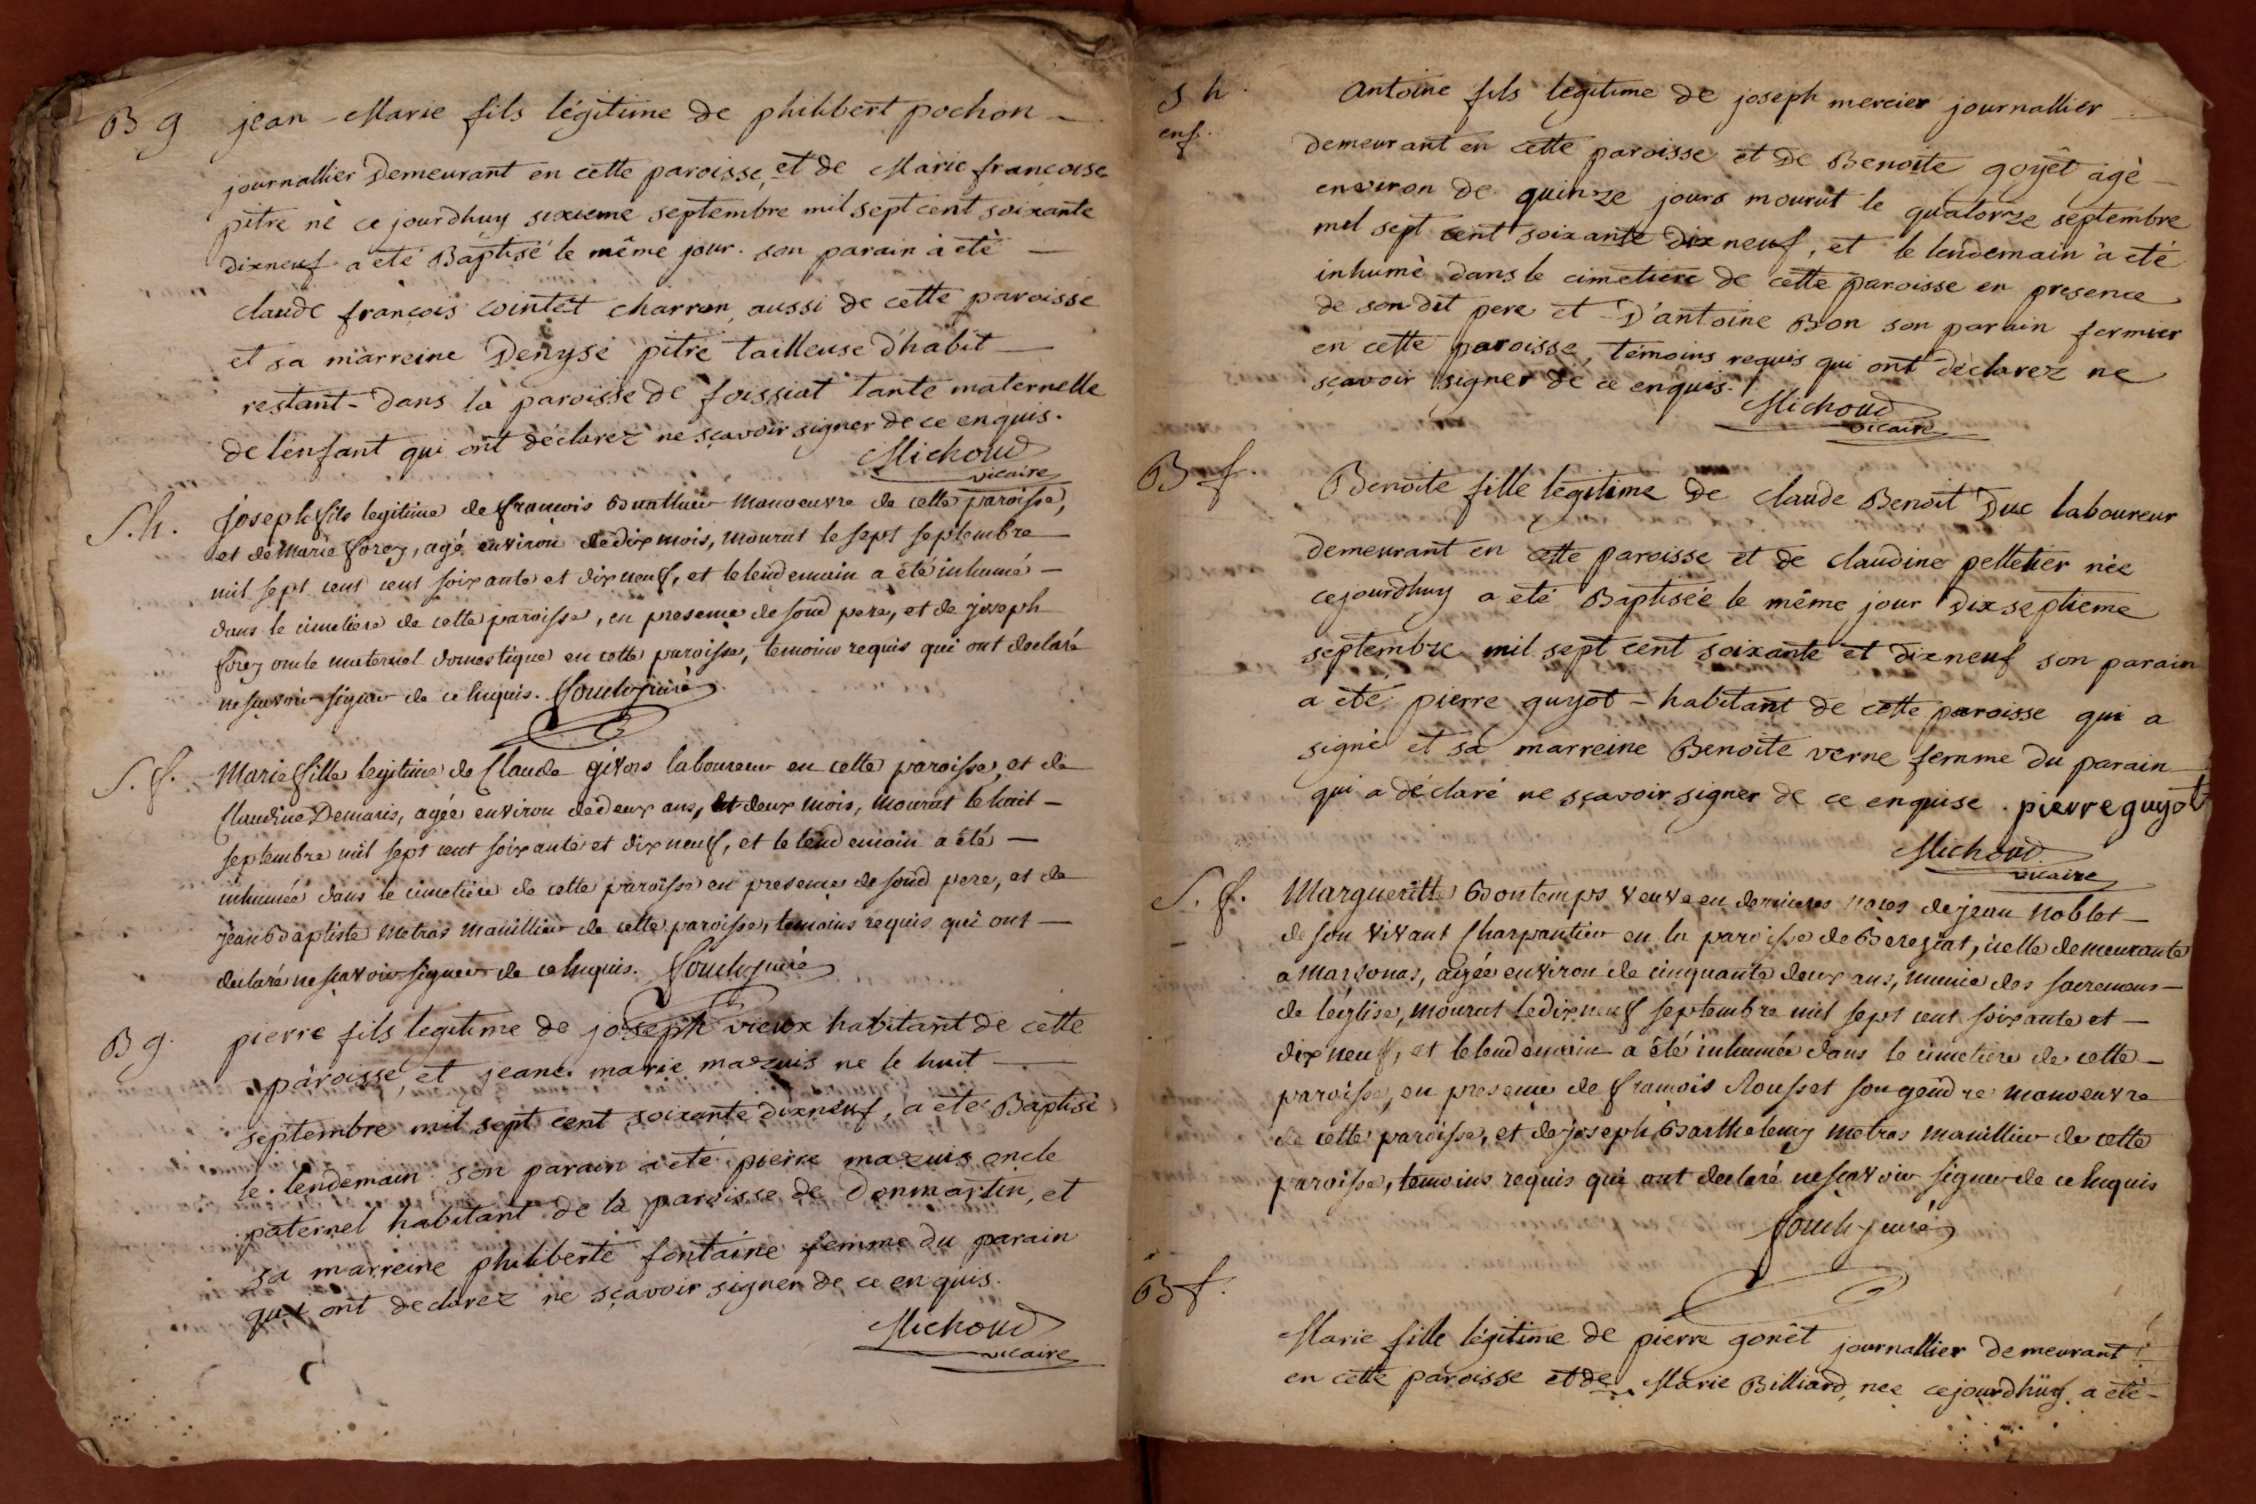 B g jean - Marie fils légitime de philibert pochon -
journallier Demeurant en cette paroisse, et de Marie françoise
pitre nè ce jourdhuy sixieme septembre mil sept cent soixante
dixneuf a eté Baptisé le même jour. son parain à etè -
claude françois cointet charron aussi de cette paroisse
et sa marreine Denyse pitre tailleuse d'habit -
restant - dans la paroisse de foissiat tante maternelle
de lenfant qui ont déclarez ne sçavoir signer de ce enquis.
Michoud
vicaire
S. h. Joseph fils legitime de françois manoeuvre de cette paroisse,
et de Marie forey, agé environ de dix mois, mourut le sept septembre
mil sept cent cent soixante et dix neuf, et le lendemain a été inhumé -
dans le cimetiere de cette paroisse, en presence de soud pere, et de joseph
forey oncle maternel domestique en cette paroisse, temoins requis qui ont declaré
ne scavoir signer de ce enquis.
S. f. Marie fille legitime de Claude givors laboureur en cette paroisse, et de
Claudine Demaris, agée environ de deux ans, et deux mois, mourut le huit -
septembre mil sept cent soixante et dix neuf, et le lendemain a été -
inhumée dans le cimetiere de cette paroisse en presence de soud pere, et de
jean Baptiste metras manillier de cette paroisse, temoins requis qui ont -
declaré ne scavoir signer de ce enquis.
B g. pierre fils legitime de joseph vieux habitant de cette
paroisse, et jeane marie mazuis ne le huit -
septembre mil sept cent soixante dixneuf, a eté Baptisè
le lendemain son parain a eté pierre mazuis oncle
paternel habitant de la paroisse de Donmartin, et
sa marreine philiberte fontaine femme du parain
qui ont declarez ne sçavoir signer de ce en quis.
Michoud
vicaire
S h Antoine fils legitime de joseph mercier journallier
enf. Demeurant en cette paroisse et de Benoite goyet agè -
environ de quinze jours mourut le quatorze septembre
mil sept cent soixante dix neuf, et le lendemain a eté
inhumè dans le cimetiere de cette paroisse en presence
de son dit pere et D'antoine Bon son parain fermier
en cette paroisse, témoins requis qui ont déclarez ne
sçavoir signer de ce enquis.
Michoud
vicaire
B f. Benoite fille légitime de claude Benoit Duc laboureur
Demeurant en cette paroisse et de claudine pelletier née
cejourdhuy a eté Baptisée le même jour Dix septieme
septembre mil sept cent soixante et dixneuf son parain
a été pierre guyot - habitant de cette paroisse qui a
signé et sa marreine Benoite verne femme du parain
qui a déclaré ne sçavoir signer de ce enquise. pierre guyot
Michoud
vicaire
S. f. Margueritte Bontemps veuve en dernieres noces de jean Noblet -
de son vivant Charpantier en la paroisse de Bereziat, icelle demeurante
a Marsonas, agée environ de cinquante deux ans, munie des sacremens -
de léglise, mourut le dix neuf septembre mil sept cent soixante et -
dix neuf, et le lendemain a été inhumée dans le cimetiere de cette -
paroisse, en presence de françois Rousset son gendre manoeuvre
de cette paroisse, et de joseph Barthelemy metras manillier de cette
paroisse, temoins requis qui ont declaré ne scavoir signer de ce enquis
B f.
Marie fille légitime de pierre gonêt journallier demeurant
en cette paroisse et de Marie Billiard, neè cejourdhüy a eté -